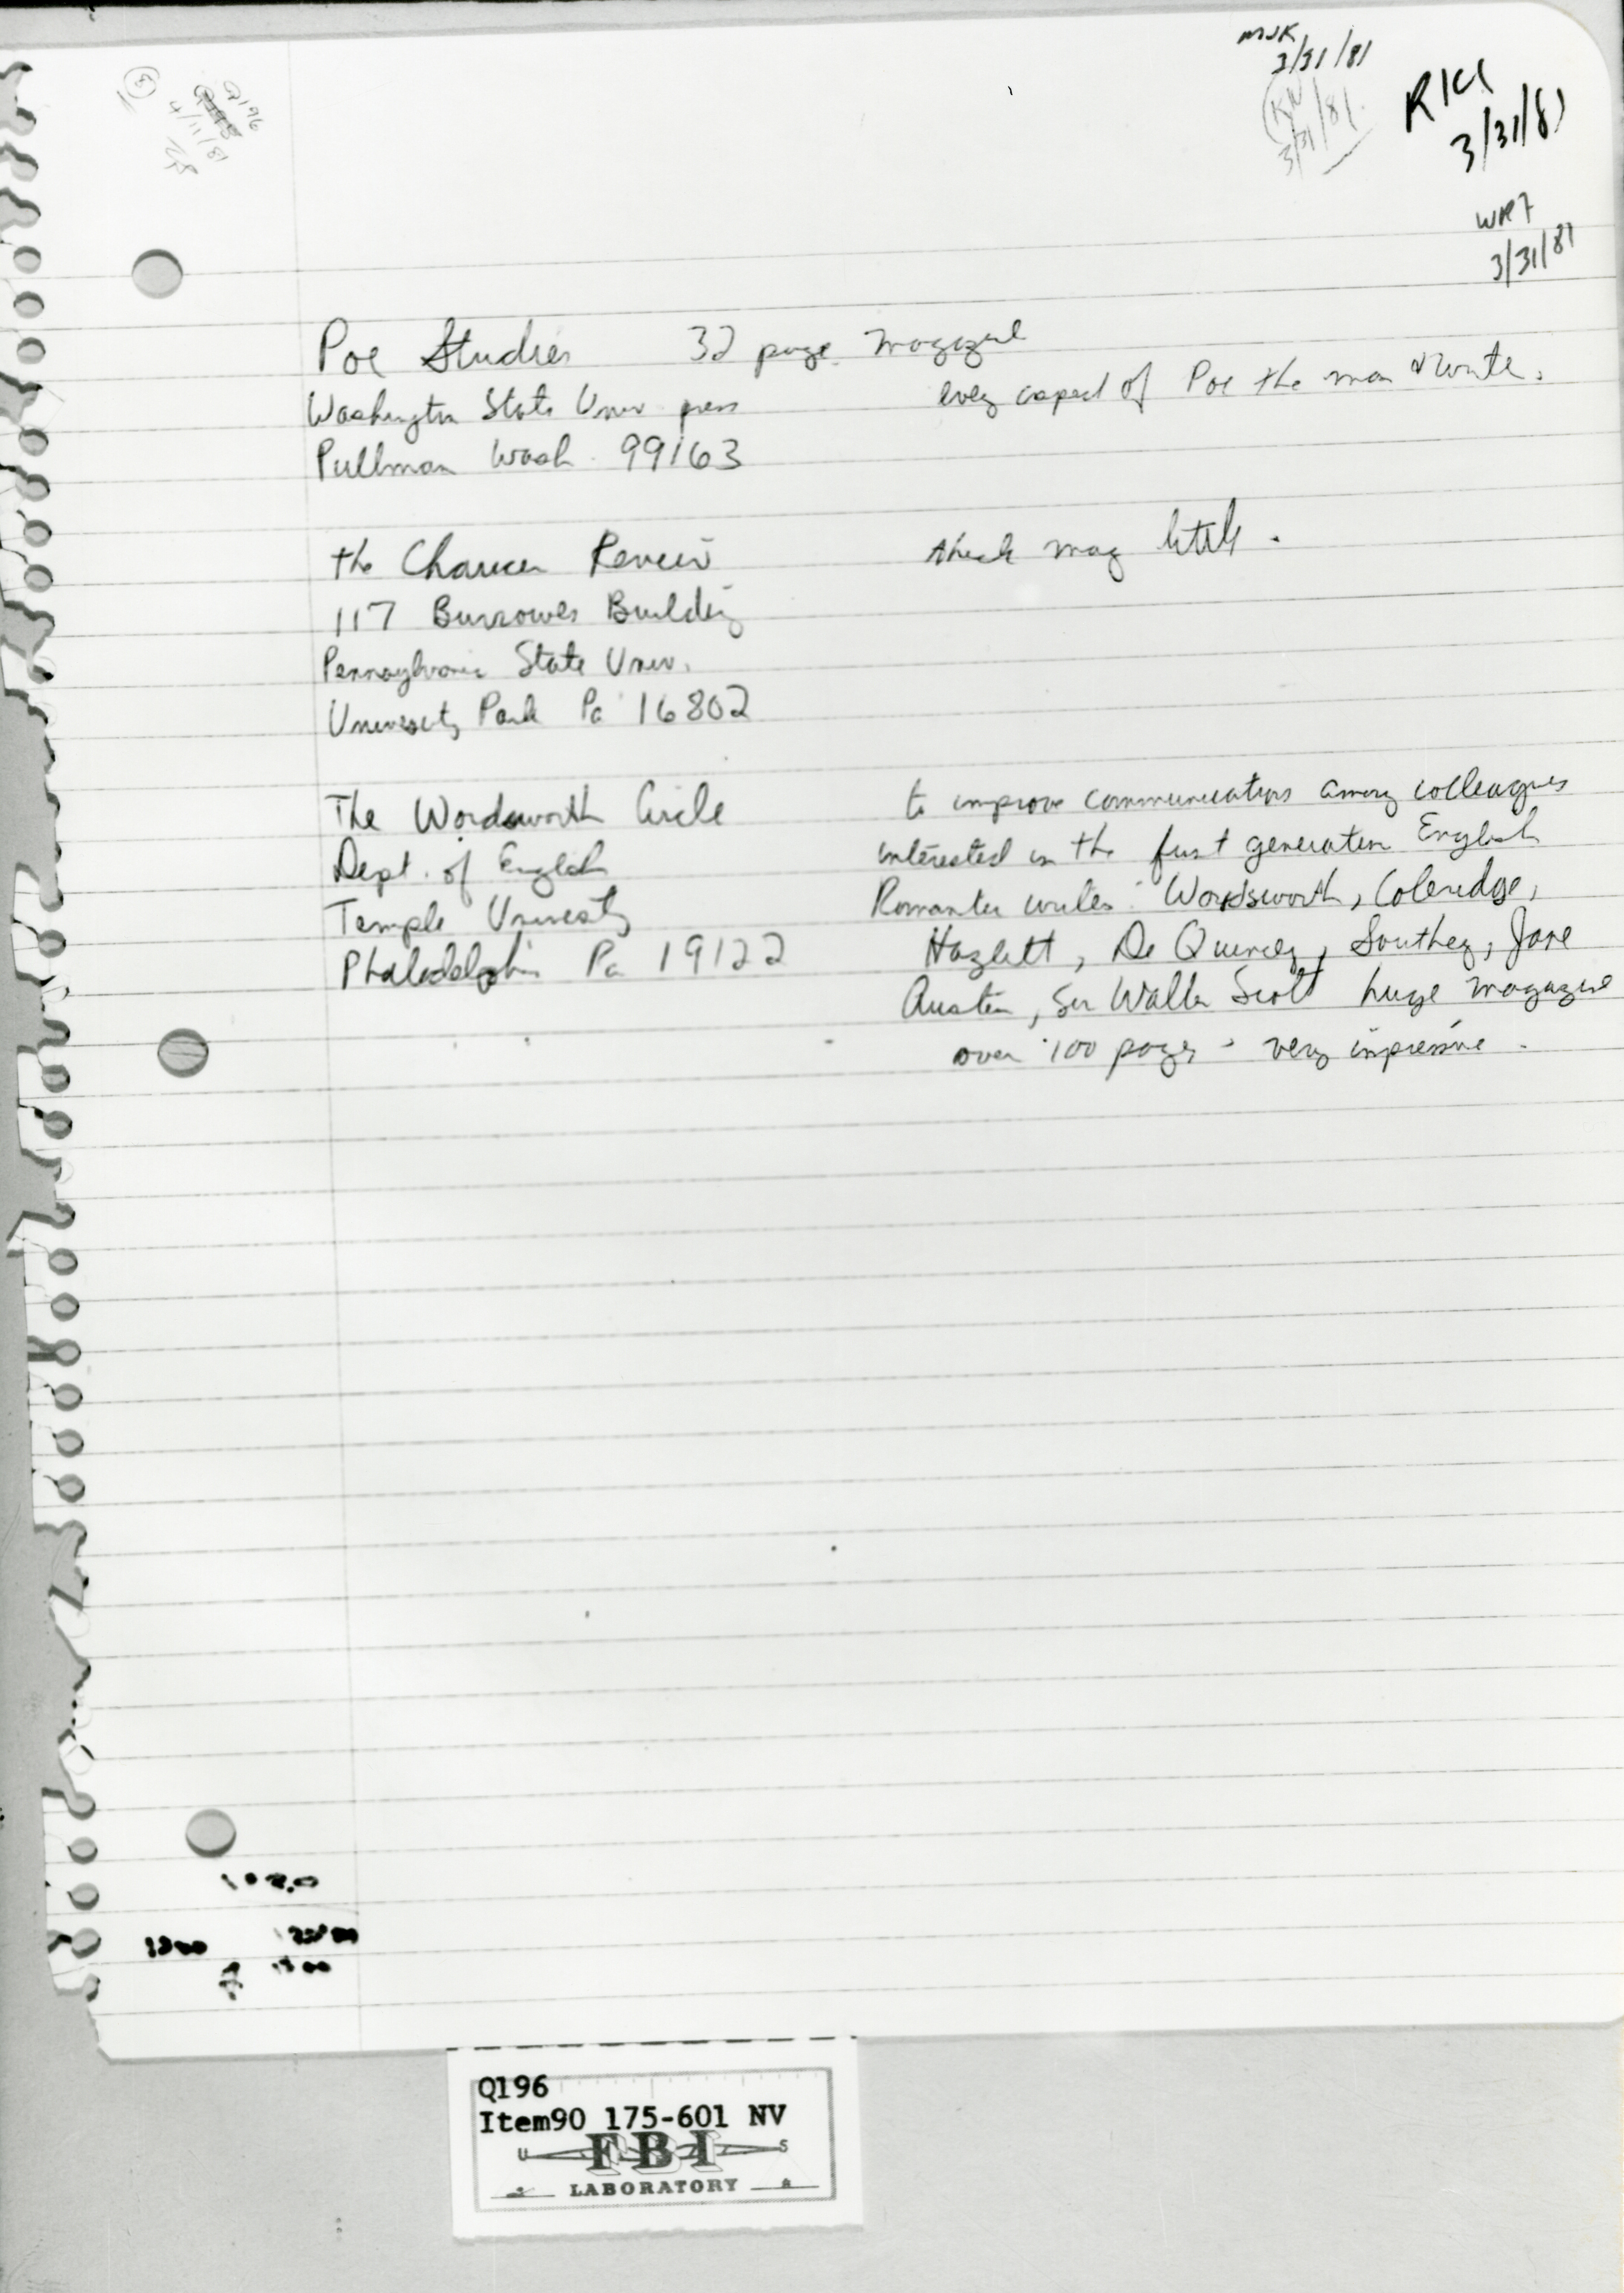 MJK
3/31/81
KN
3/31/81.
RKI
3/31/81
WRT
3/31/81
3
Q196
4/11/81
Poe Studies 32 page magazine
Washington State Univ press every aspect of Poe the man & write.
Pullman Wash. 99163
the Chaucer Review thick mag
117 Burrowes Building
Pennsylvania State Univ.
University Park Pa 16802
The Wordsworth Circle to improve communications among colleagues
Dept. of English interested in the first generation English
Temple University Romantic writers: Wordsworth, Coleridge,
Philadelphia Pa 19122 Hazlett, De Quincey, Southey, Jane
Austen, Sir Walter Scott huge magazine
over 100 pages - very impressive.
Q196
Item90 175-601 NV
U S
FBI
LABORATORY